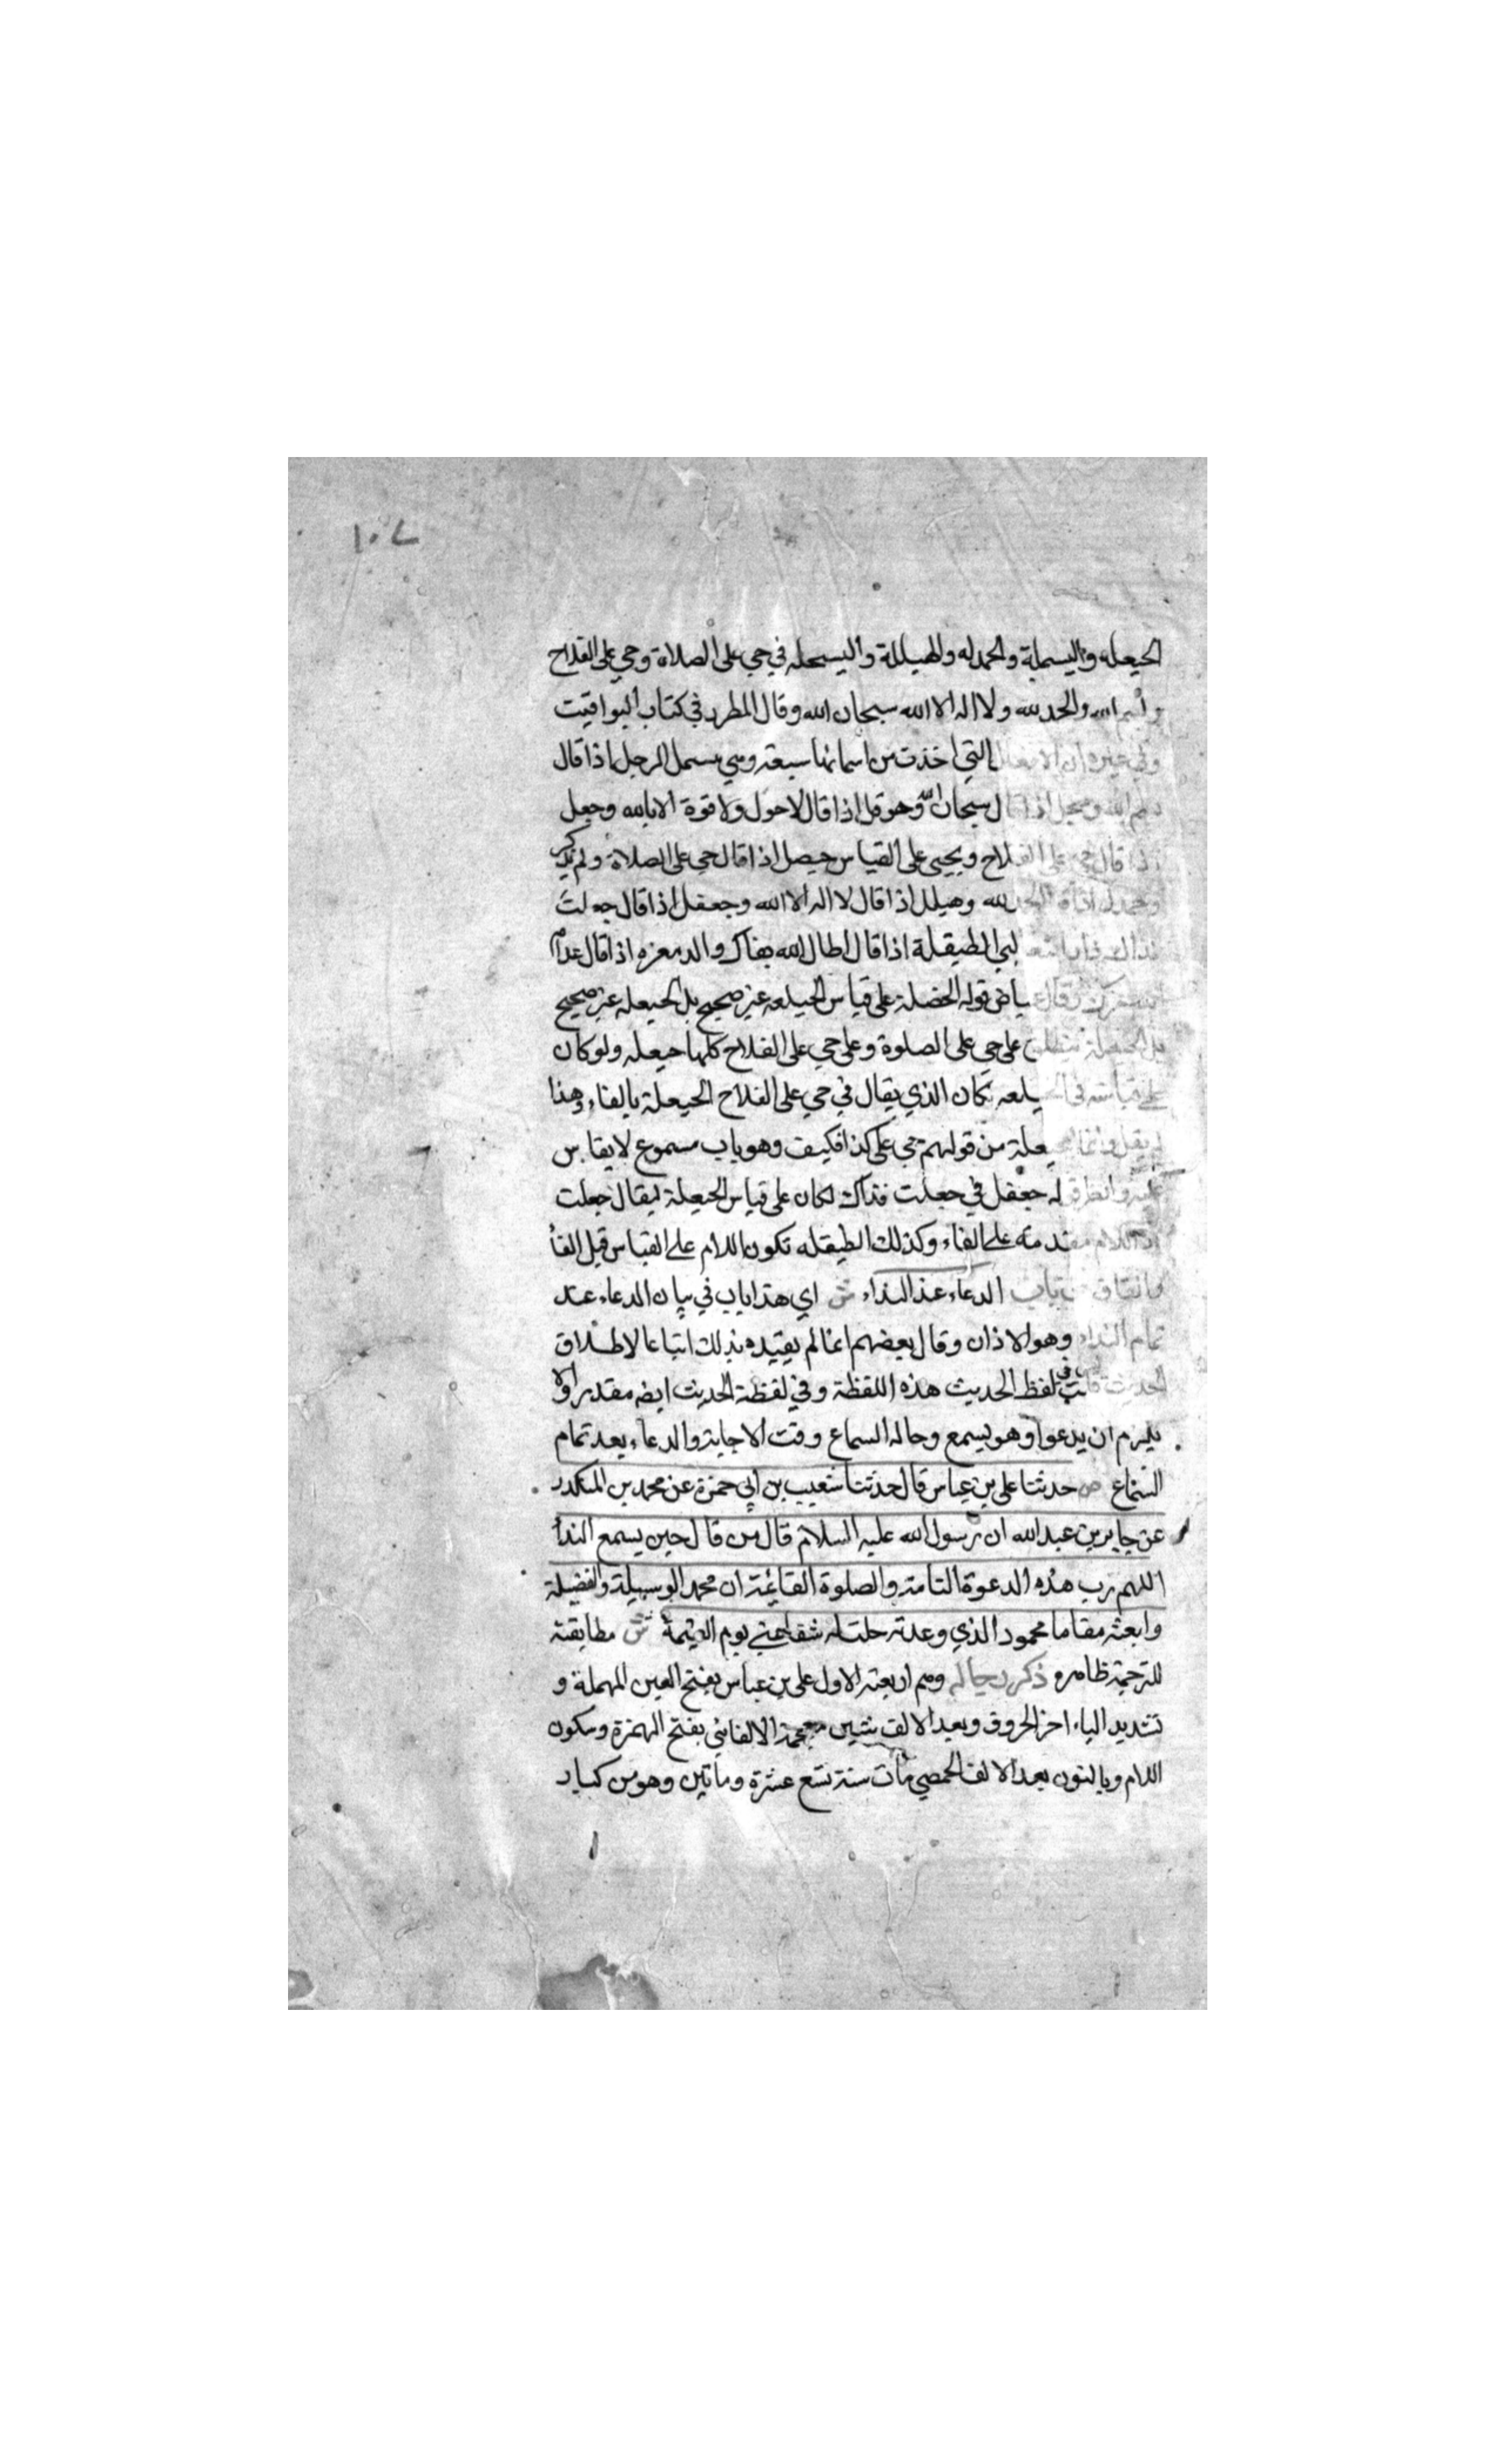 ١٠٢
الحيعله والبسملة والحمدله والهيللة والسبحله في حي على الصلاة وحي على الفلاح
وبسم الله والحمد لله ولا اله الا الله سبحان الله وقال المطرد في كتاب اليواقيت
وفي غيره ان الافعال التي اخذت من اسمائها سبعة وهي بسمل الرجل اذا قال
بسم الله وسبحل اذا قال سبحان الله وحوقل اذا قال لا حول ولا قوة الا بالله وحيعل
اذا قال حي على الفلاح ويجيى على القياس حيصل اذا قال حي على الصلاة ولم يذكر
وحمدل اذا قال الحمد لله وهيلل اذا قال لا اله الا الله وجعفل اذا قال جعلت
فداك ذاد الثعلبي الطيقلة اذا قال اطال الله بقاك والدمعزه اذا قال ادام
الله عزك وقال عياض قوله الحيصلة على قياس الحيلعه غير صحيح بل الحيعله غير صحيح
بل الحيعلة تنطلق على حي على الصلوة وعلى حي على الفلاح كلها حيعله ولو كان
على قياسه في الحيلعه لكان الذي يقال في حي على الفلاح الحيعلة بالفاء وهذا
لم يقل وانما الحيعلة من قولهم حي على كذا فكيف وهو باب مسموع لا يقاس
عليه وانظر قوله جعفل في جعلت فداك لكان على قياس الحيعلة ليقال جعلت
اذ اللام مقدمة على الفاء وكذلك الطيقله تكون اللام على القياس قبل الفا
والقاف ص باب الدعاء عند النداء ش اي هذا باب في بيان الدعاء عند
تمام النداء وهو الاذان وقال بعضهم انما لم يقيده بذلك اتباعا لاطلاق
الحديث قلت ليس في لفظ الحديث هذه اللفظة وفي لفظة الحديث ايضه مقدر والا
يلزم ان يدعوا وهو يسمع وحاله السماع وقت الاجابة والدعاء بعد تمام
السماع ص حدثنا على بن عياس قال حدثنا شعيب بن ابي حمزة عن محمد بن المنكدر
عن جابر بن عبد الله ان رسول الله عليه السلام قال من قال حين يسمع الندا
اللهم رب هذه الدعوة التامة والصلوة القائمة ات محمد الوسيلة والفضيلة
وابعثه مقاما محمود الذي وعدته حلت له شفاعتي يوم القيمة ش مطابقته
للترجمة ظاهره ذكر رجاله وهم اربعة الاول على بن عياس بفتح العين المهملة و
تشديد الياء اخر الحروف وبعد الالف شين معجمة الالفاني بفتح الهمزة وسكون
اللام وبالنون بعد الالف الحمصي مات سنة تسع عشرة وماتين وهو من كبار